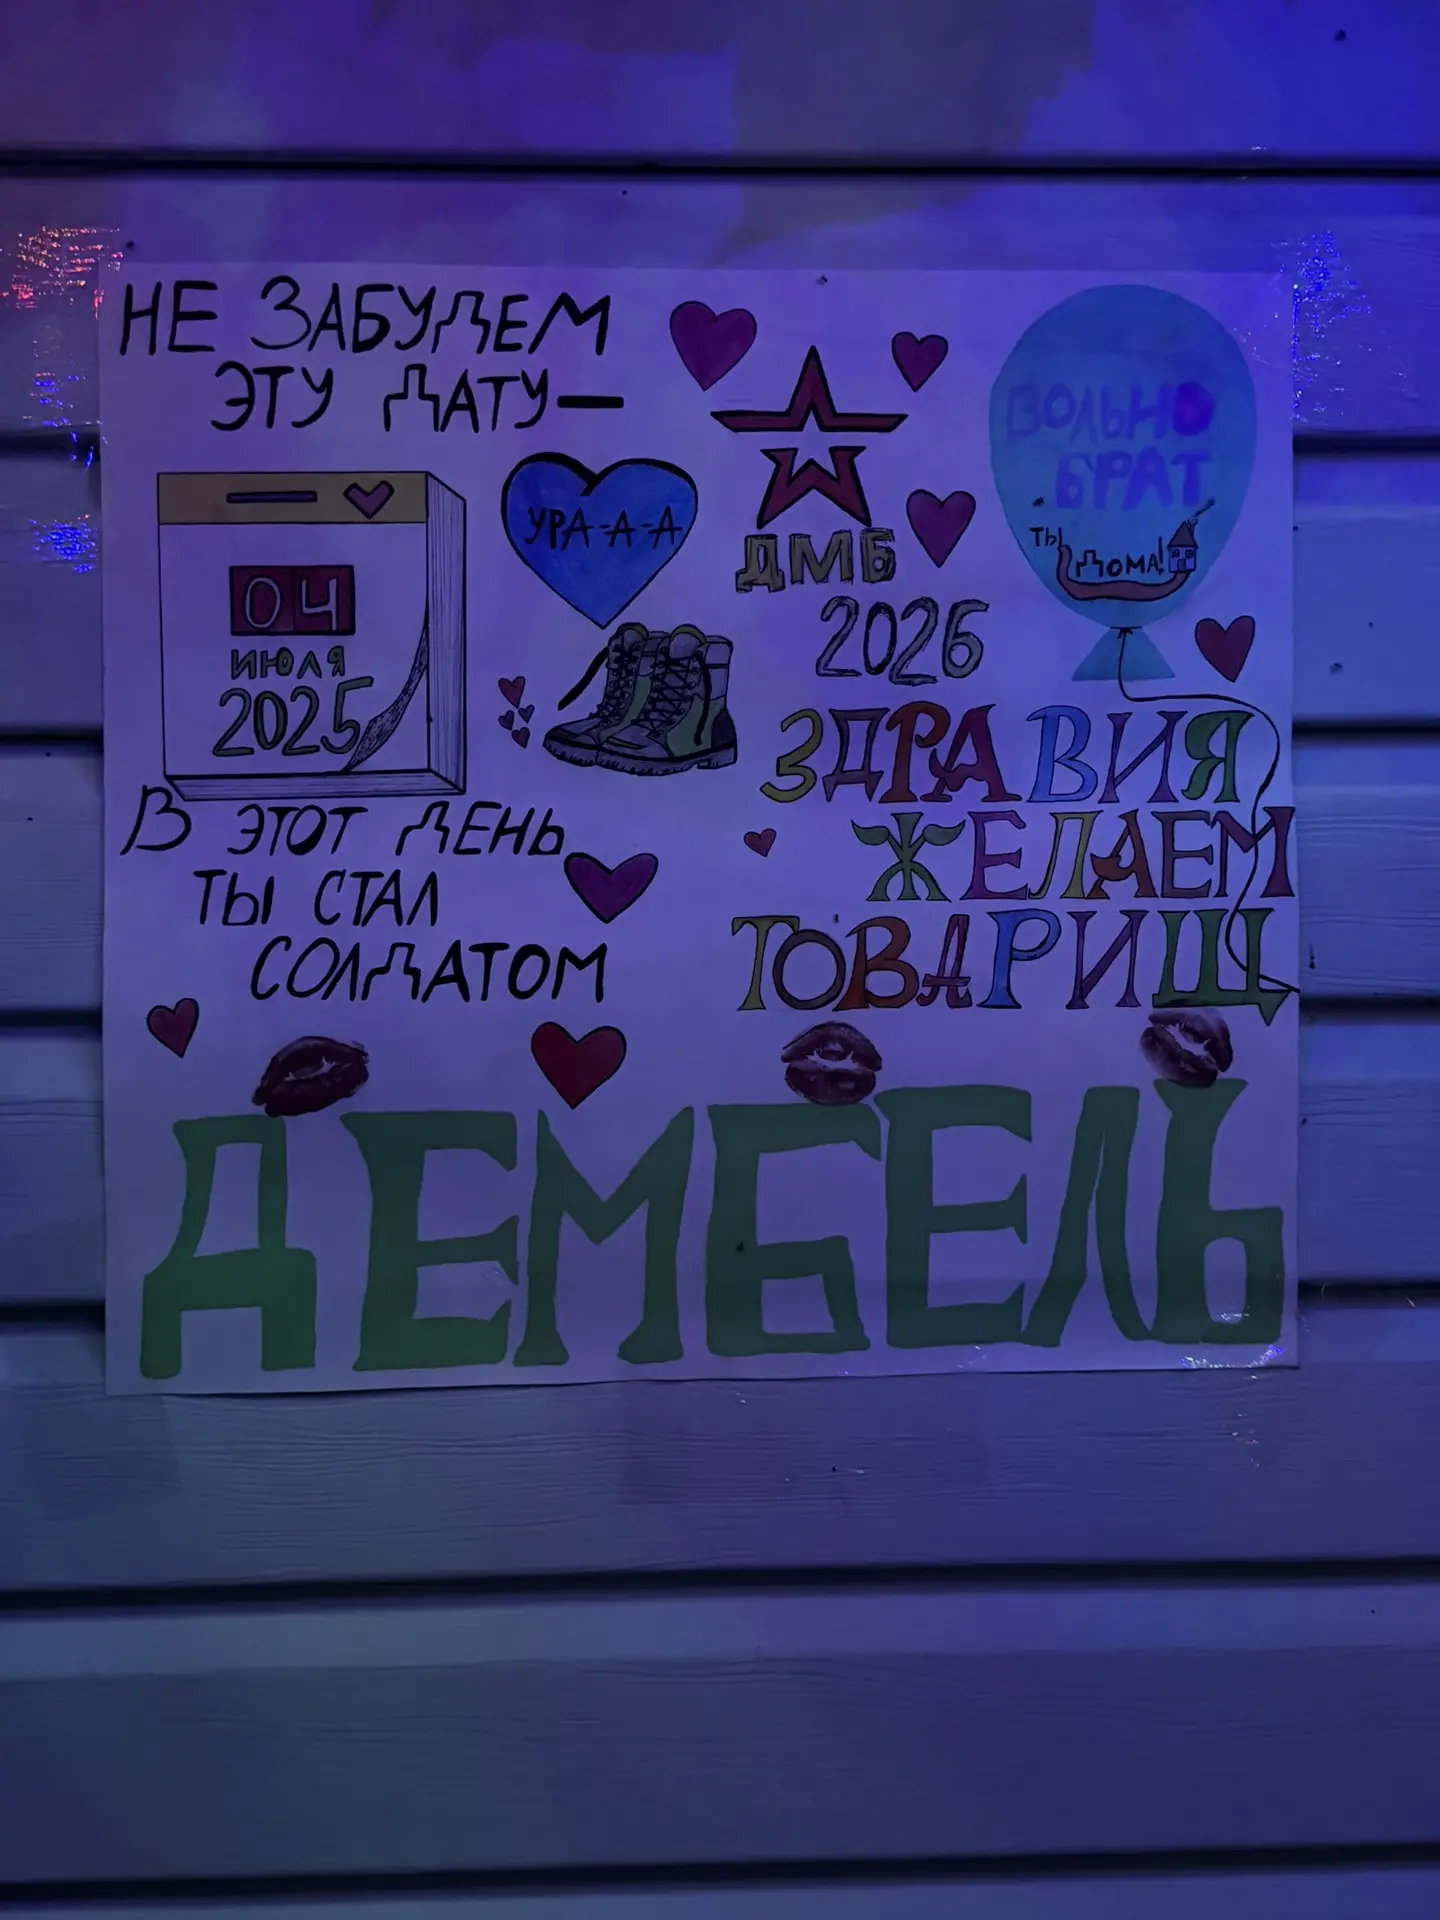 НЕ ЗАБУДЕМ
ЭТУ ДАТУ—
04
ИЮЛЯ
2025
УРА-А-А
В ЭТОТ ДЕНЬ
ТЫ СТАЛ
СОЛДАТОМ
ДМБ
2026
ВОЛЬНО
БРАТ
ТЫ
ДОМА!
ЗДРАВИЯ
ЖЕЛАЕМ
ТОВАРИЩ
ДЕМБЕЛЬ